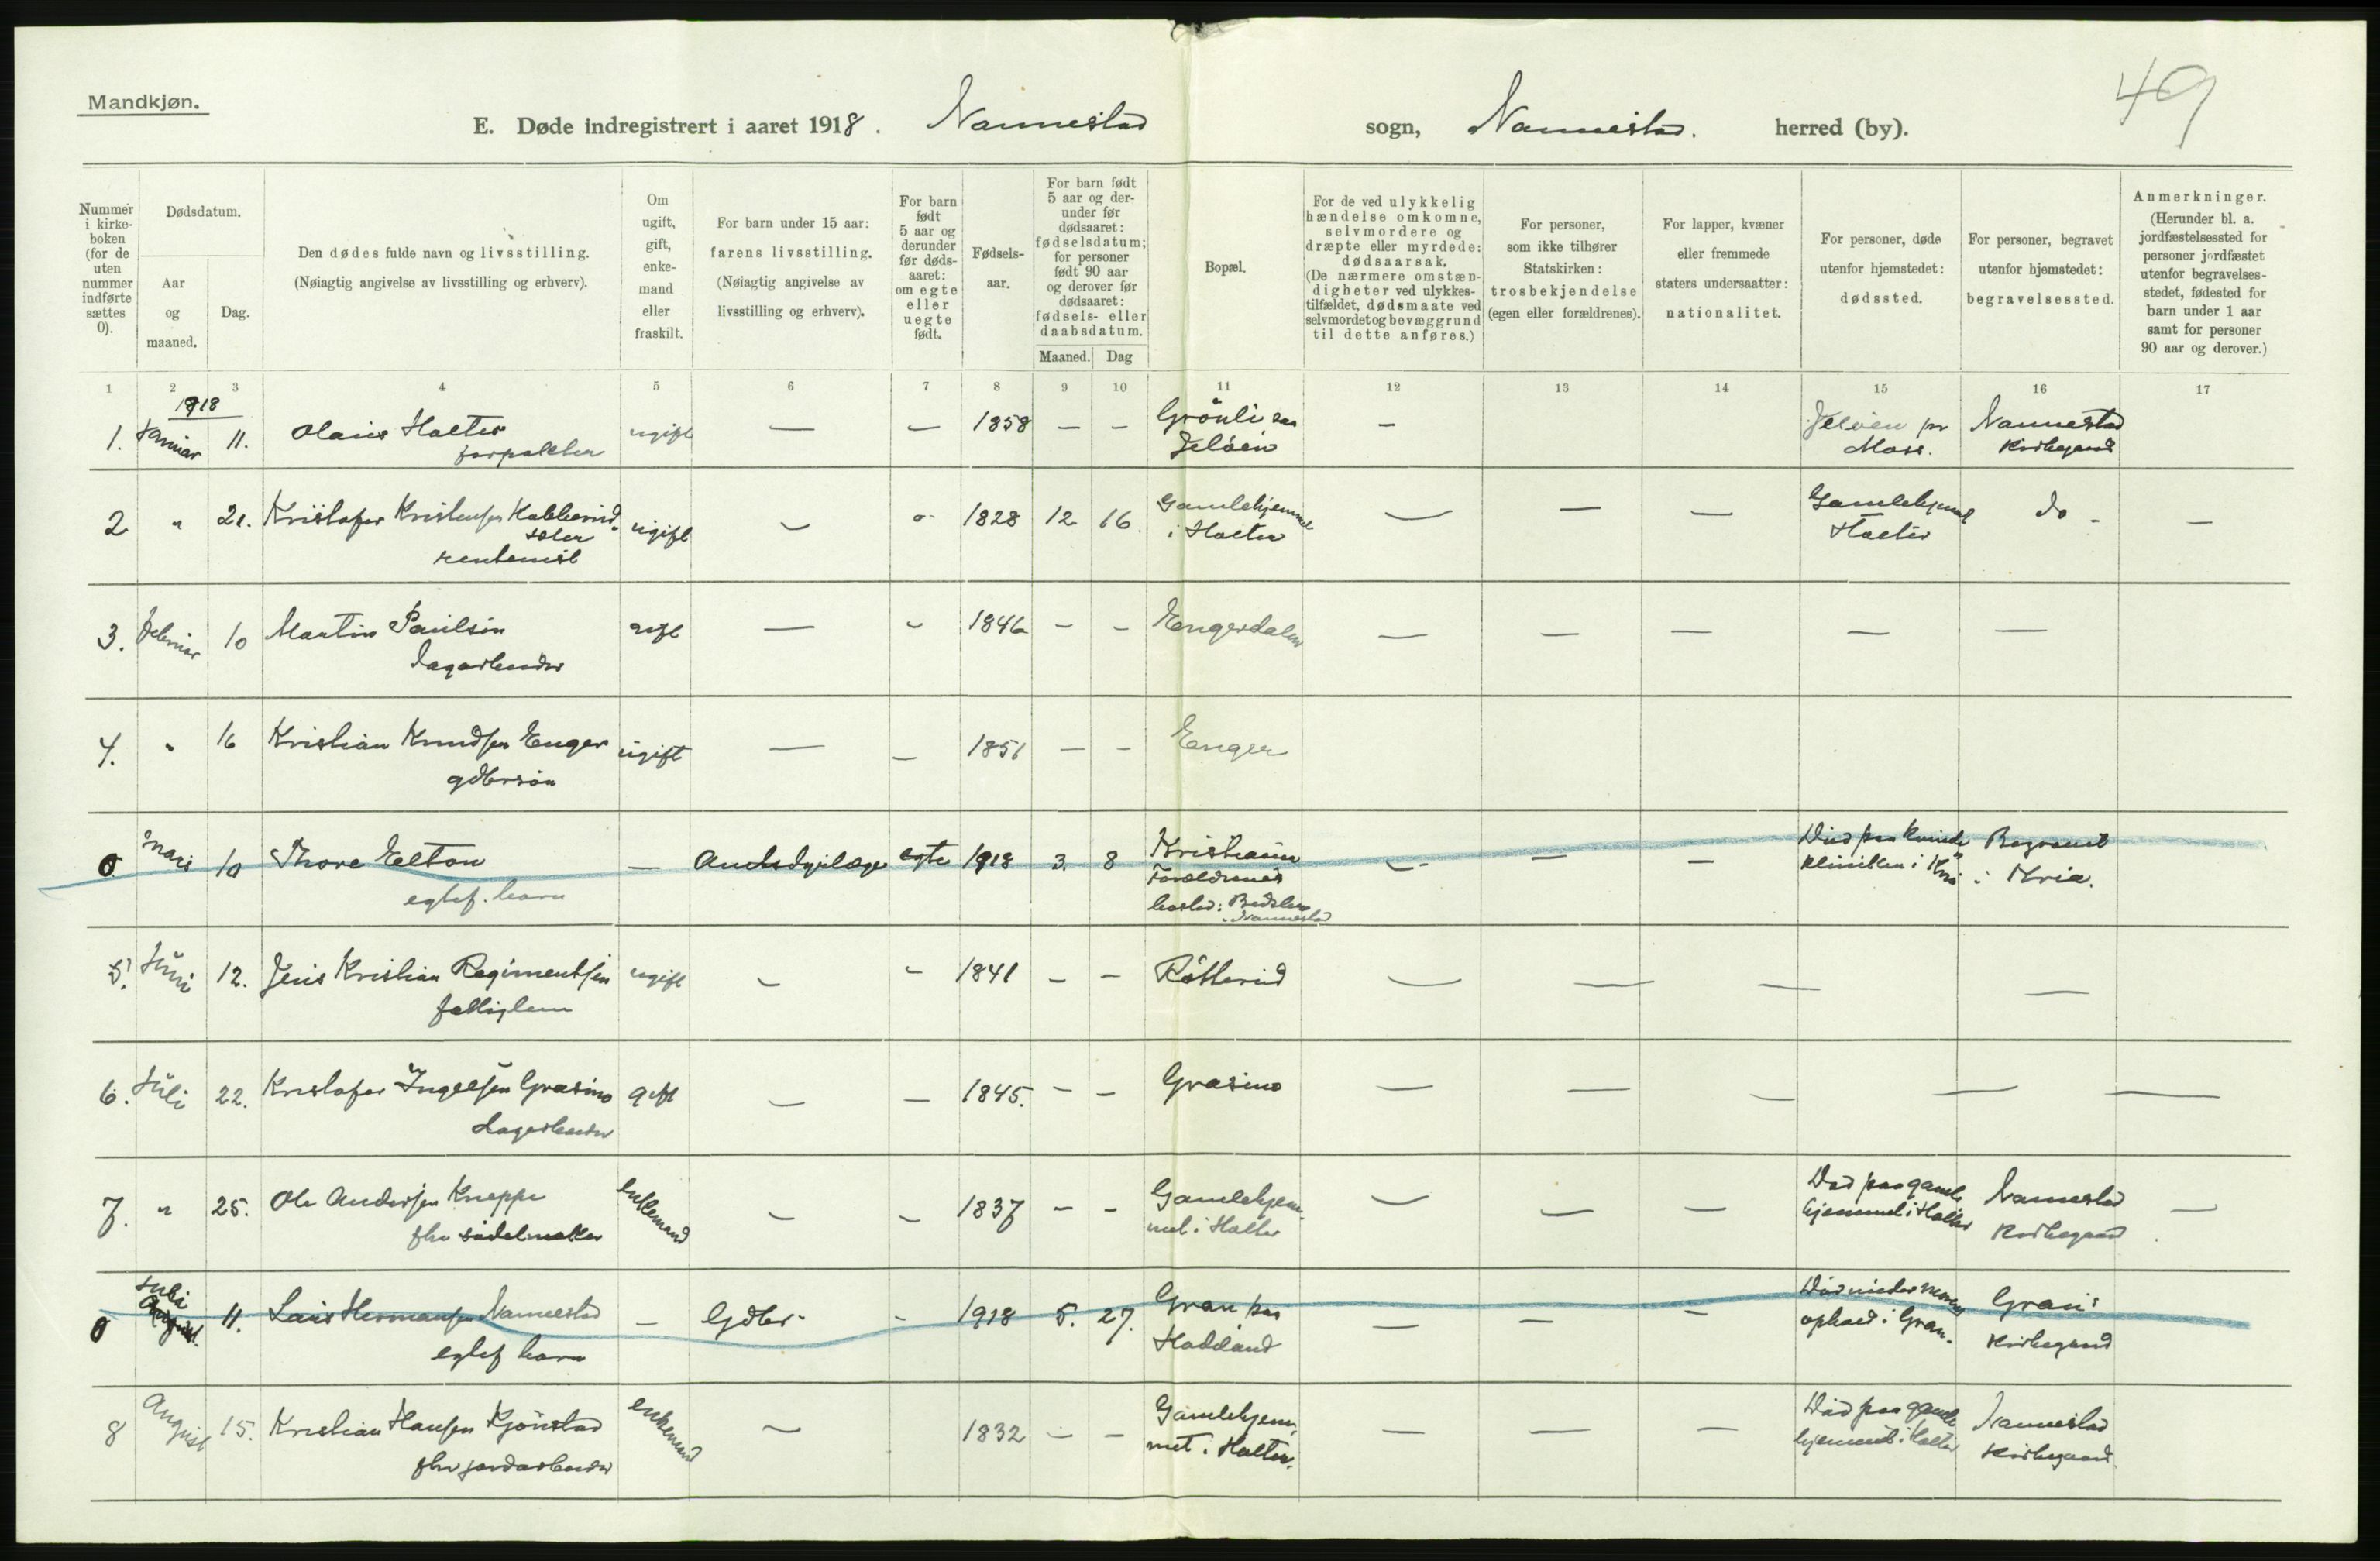 Mandkjøn.
49
E. Døde indregistrert i aaret 1918. Nannestad sogn, Nannestad. herred (by).
Nummer i kirke-boken (for de uten nummer indførte sættes 0).
Dødsdatum.
Aar og maaned.
Dag.
Den dødes fulde navn og livsstilling.
(Nøiagtig angivelse av livsstilling og erhverv).
Om ugift, gift, enke-mand eller fraskilt.
For barn under 15 aar:
farens livsstilling.
(Nøiagtig angivelse av livsstilling og erhverv).
For barn født 5 aar og derunder før døds-aaret: om egte eller uegte født.
Fødsels-aar.
For barn født 5 aar og der-under før dødsaaret: fødselsdatum; for personer født 90 aar og derover før dødsaaret: fødsels- eller daabsdatum.
Maaned. Dag
Bopæl.
For de ved ulykkelig hændelse omkomne, selvmordere og dræpte eller myrdede: dødsaarsak.
(De nærmere omstæn-digheter ved ulykkes-tilfældet, dødsmaate ved selvmordet og bevæggrund til dette anføres.)
For personer, som ikke tilhører Statskirken: trosbekjendelse (egen eller forældrenes).
For lapper, kvæner eller fremmede staters undersaatter: nationalitet.
For personer, døde utenfor hjemstedet: dødssted.
For personer, begravet utenfor hjemstedet: begravelsessted.
Anmerkninger.
(Herunder bl. a. jordfæstelsessted for personer jordfæstet utenfor begravelses-stedet, fødested for barn under 1 aar samt for personer 90 aar og derover.)
1 2 3 4 5 6 7 8 9 10 11 12 13 14 15 16 17
1918
1. Januar 11. Olaus Holter ugift — — 1858 — — Grönli — Jelöen pr Nannestad
forpakter Jelöen Moss. Kirkegaard
2 " 21. Kristofer Kristensen ugift — 1828 12 16. Gamlehjemmet — — — Gamlehjemmet do - —
i Holter Holter
rentenist
3. Februar 10 Martin Paulsen gift — - 1846 - - Engerdalen — — — — —
dagarbeider
4. " 16 Kristian Knudsen Enger ugift — — 1851 — - Enger
gdbrsön
0 mars 10 Thore Eelton — egte 1918 3. 8 Kristiania — — — Död paa kvinde Begravet
egtef. barn Forældrenes klinikken i Kria i Kria.
bosted: Nannestad
5. Juni 12. Jens Kristian Regimentsen ugift - - 1841 - - Rötterud — — — —
fattiglem
6. Juli 22. Kristofer Ingelsen Grasmo gift — — 1845. - - Grasmo — — — — —
dagarbeider
7. " 25. Ole Andersen Kneppe enkemand — — 1837 - - Gamlehjem- — — — Död paa gamle Nannestad —
fhv sadelmaker met i Holter hjemmet i Holter Kirkegaard
Juli
0 11. Lars Hermansen Nannestad — Gdbr. - 1918 5. 27. Gran paa — — — Död under morens Grans
egtef barn Hadeland ophold i Gran. Kirkegaard
8 August 15. Kristian Hansen Kjönstad enkemand — 1832 — — Gamlehjem- — — — Död paa gamle Nannestad
fhv jordarbeider met i Holter. hjemmet i Holter Kirkegaard.